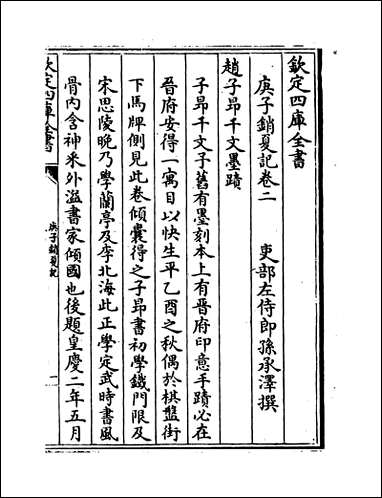 欽定四庫全書
庚子銷夏記卷二
吏部左侍郎孫承澤撰
趙子昻千文墨蹟
子昻千文子舊有墨刻本上有晉府印意手蹟必在
晉府安得一寓目以快生平乙酉之秋偶於棋盤街
下馬牌側見此卷傾囊得之子昻書初學鐵門限及
宋思陵晩乃學蘭亭及李北海此正學定武時書風
骨内含神采外溢書家傾國也後題皇慶二年五月
欽定四庫全書
庚子銷夏記
一